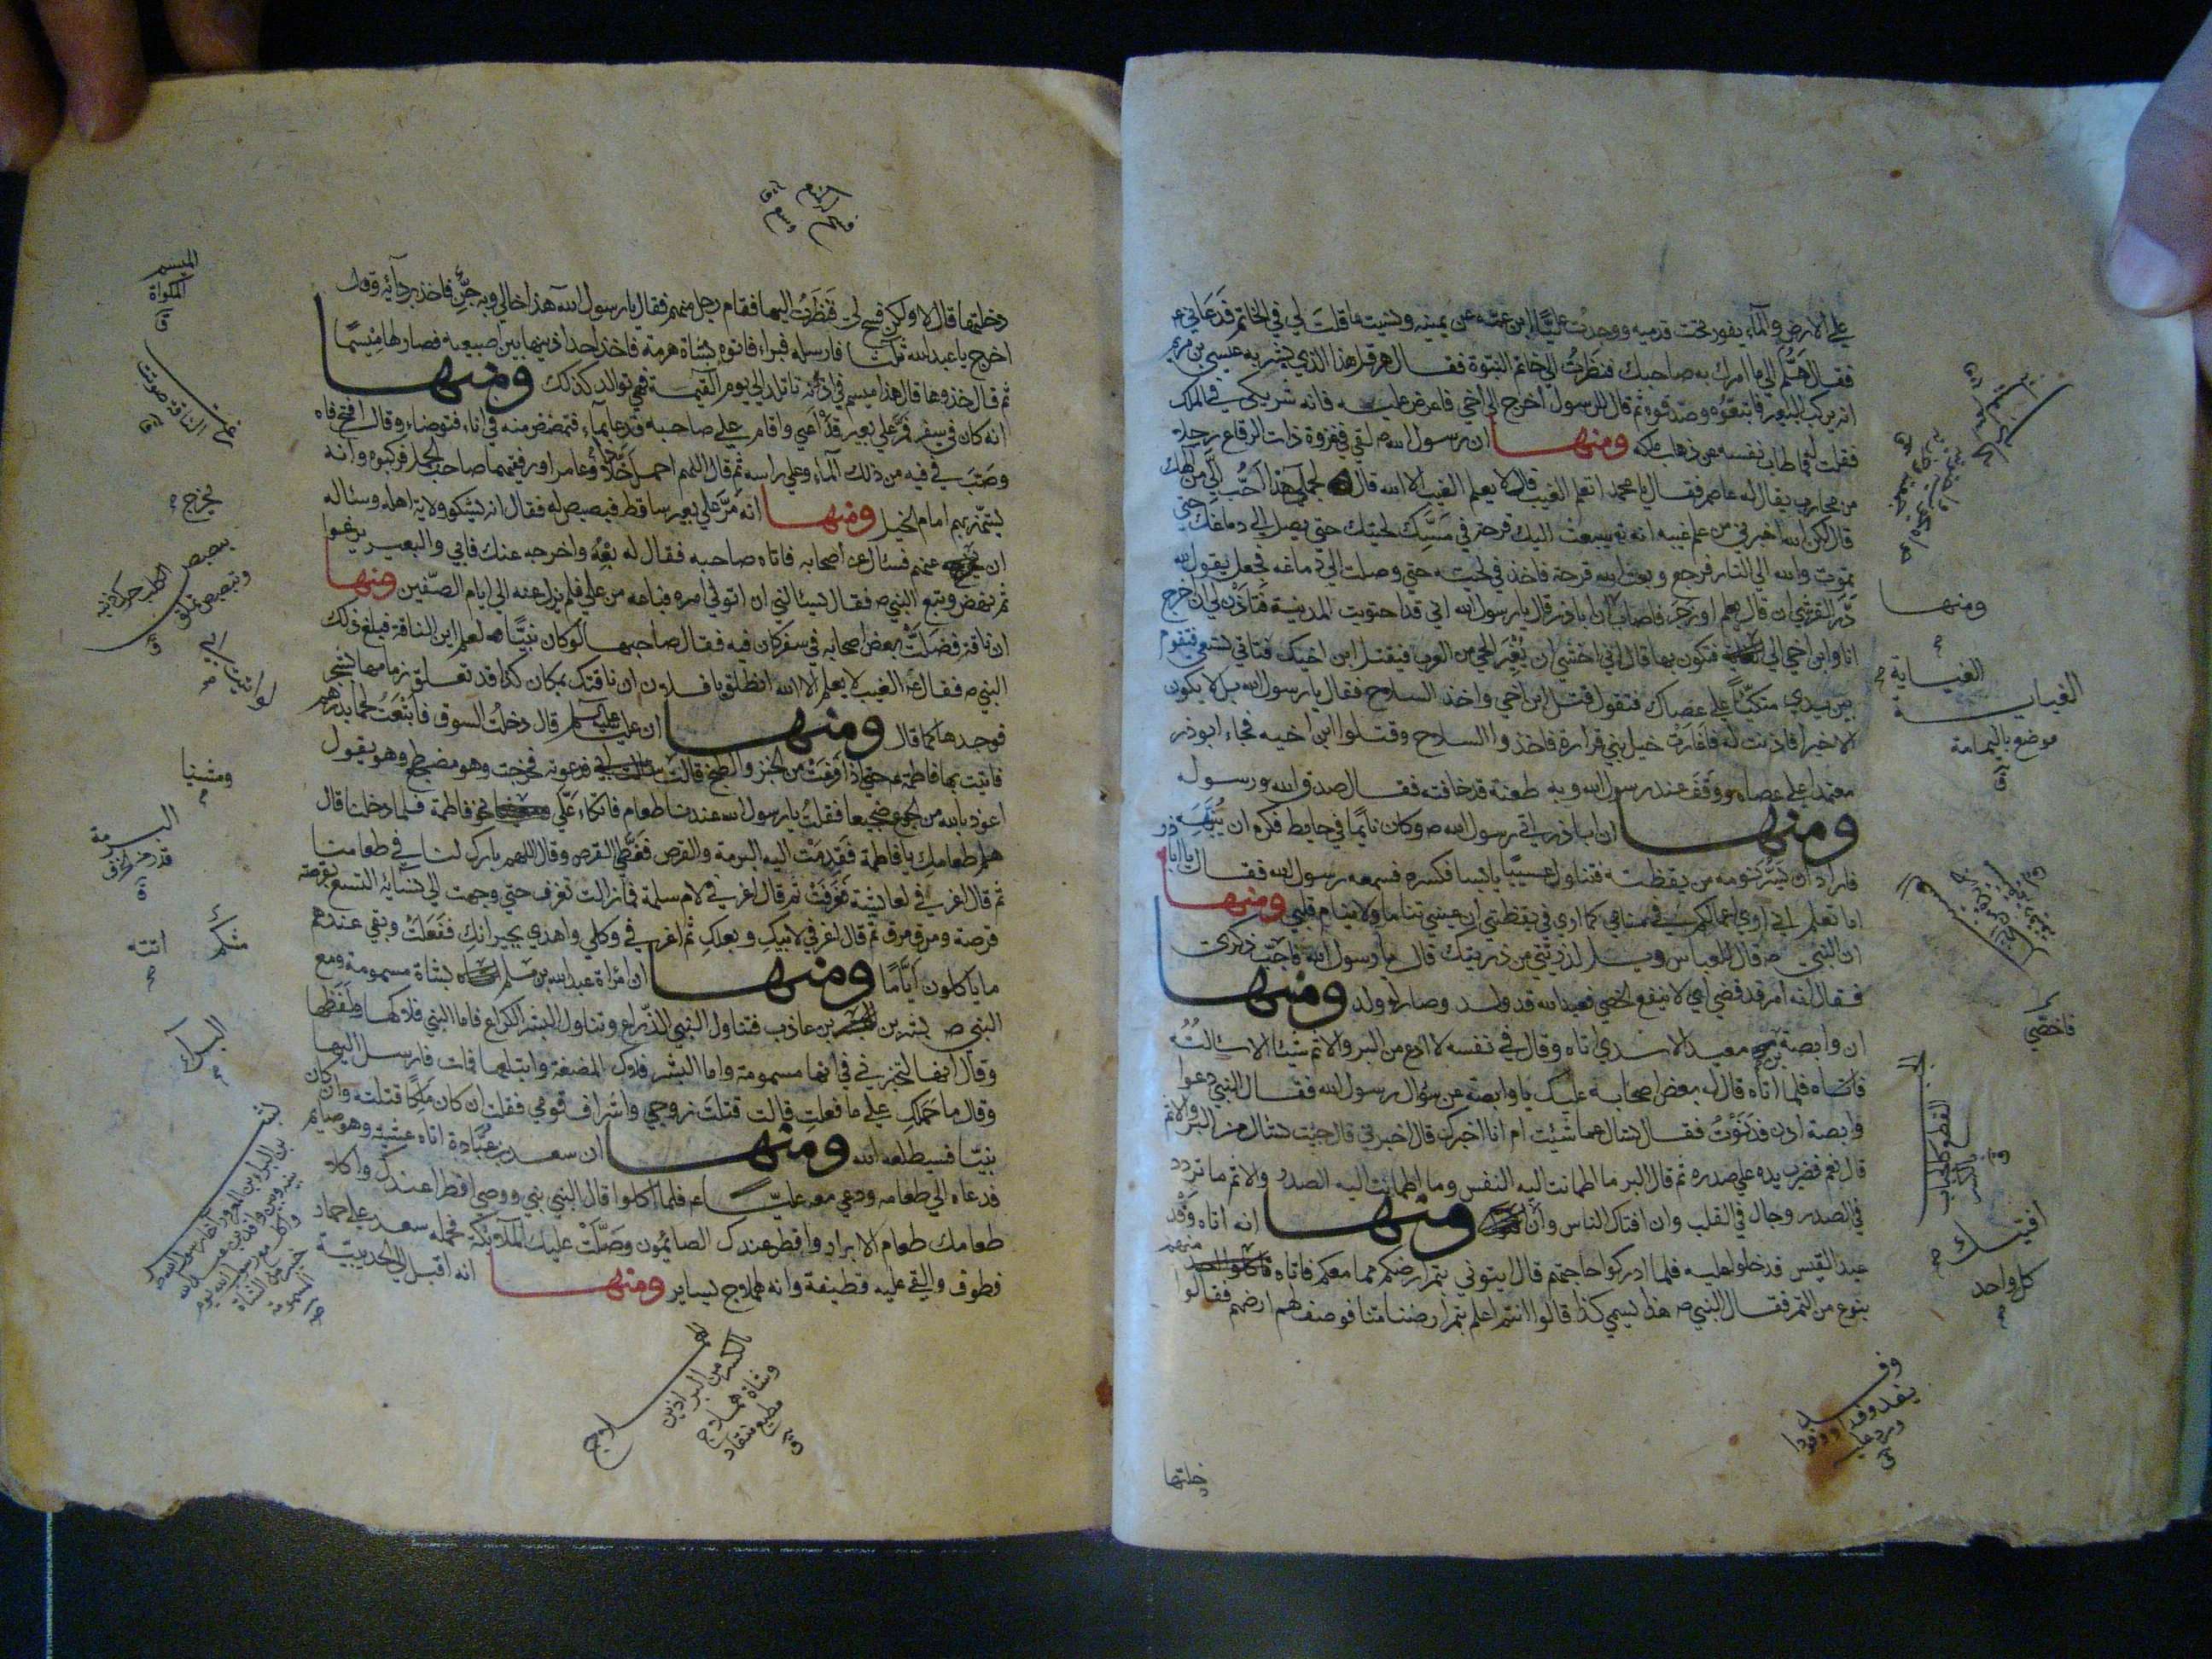 على الارض والماء يفور تحت قدميه ووجدت عليا ابن عمه عن يمينه ونسيت ما قلت لي في الخاتم فدعاني
فقال هلم الى ما امرك به صاحبك فنظرت الى خاتم النبوة فقال هرقل هذا الذي بشر به عيسى بن مريم
انه يركب البعير فاتبعوه وصدقوه ثم قال للرسول اخرج الى اخي فاعرض عليه فانه شريكي في الملك
فقلت له فما طاب نفسه عن ذهاب ملكه ومنها ان رسول الله ص لقي في غزوة ذات الرقاع رجلا
من محارب يقال له عاصم فقال يا محمد اتعلم الغيب قال لا يعلم الغيب الا الله قال لجملي هذا احب الي من الهك
قال لكن الله اخبرني من علم غيبه انه يبعث اليك قرحة في مسبك لحيتك حتى يصل الى دماغك حتى
تموت والله الى النار فرجع وبعث الله قرحة فاخذ في لحيته حتى وصلت الى دماغه فجعل يقول لله
در القرشي ان قال بعلم او زجر فاصاب ان اباذر قال يا رسول الله اني قد اجتويت المدينة فتاذن لي ان اخرج
انا وابن اخي الى فتكون بها قال اني اخشى ان يغير الحي من العرب فيقتل ابن اخيك فتاتي تسعى فتقوم
بين يدي متكئا على عصاك فتقول قتل ابن اخي واخذ السلاح فقال يا رسول الله بل لا يكون
الا خيرا فاذنت له فاغارت خيل بني فزارة فاخذوا السلاح وقتلوا ابن اخيه فجاء ابوذر
معتمدا على عصاه ووقف عند رسول الله وبه طعنة قد خافته فقال صدق الله ورسوله
ومنها ان اباذر اتى رسول الله ص وكان نائما في حايط فكره ان ينبهه
فاراد ان يستبرئ نومه من يقظته فتناول عسيبا يابسا فكسره فسمعه رسول الله فقال يا اباذر
اما تعلم اني ارى اعمالكم في منامي كما ارى في يقظتي ان عيني تنامان ولا ينام قلبي ومنها
ان النبي ص قال للعباس ويل لذريتي من ذريتك قال يا رسول الله فاجب ذكري
فقال انه امر قد قضي اي لا ينفع الخصي فعبدالله قد ولد وصار له ولد ومنها
ان وابصة بن معبد الاسدي اتاه وقال في نفسه لا ادع من البر والاثم شيئا الا سالته
فاتاه فلما اتاه قال له بعض اصحابه عليك يا وابصة عن سؤال رسول الله فقال النبي دعوا
وابصة ادن فدنوت فقال تسال عما شئت ام انا اخبرك قال اخبرني قال جئت تسال عن البر والاثم
قال نعم فضرب يده على صدره ثم قال البر ما اطمانت اليه النفس وما اطمانت اليه الصدر والاثم ما تردد
في الصدر وجال في القلب وان افتاك الناس وان ومنها انه اتاه وفد
عبد القيس فدخلوا عليه فلما ادركوا حاجتهم قال ايتوني بتمر ارضكم مما معكم فاتاه كل واحد منهم
بنوع من التمر فقال النبي ص هذا يسمى كذا قالوا انت اعلم بتمر ارضنا منا فوصف لهم ارضهم فقالوا
ومنها
الغياية
الغياية
موضع باليمامة
فاخصي
افتيك
كل واحد
وفد
يفد وفدا ووفودا
ورد عليه
دخلتها
دخلتها قال لا ولكن فسح لي فنظرت اليها فقام رجل منهم فقال يا رسول الله هذا خالي وبه جن فاخذ بردائه وقال
اخرج يا عبدالله ثلثا فارسله فبراء فاتوه بشاة هرمة فاخذ احد اذنيها بين اصبعيه فصار لها ميسما
ثم قال خذوها قال هذا ميسم في اذن ما تلد الى يوم القيمة فهي توالد كذلك ومنها
انه كان في سفر فمر على بعير قد اعيى واقام على صاحبه فدعا بماء فتمضمض منه في اناء فتوضاء وقال افتح فاه
وصب في فيه من ذلك الماء وعلى راسه ثم قال اللهم احمل خلادا وعامرا ورفيقهما صاحب الجمل فركبوه وانه
ليهتز بهم امام الخيل ومنها انه مر على بعير ساقط فبصبص له فقال انه يشكو ولاية اهله وسئاله
ان يخرج عنهم فسئال عن اصحابه فاتاه صاحبه فقال له بعه واخرجه عنك فابى والبعير يرغوا
ثم نهض وتبع النبي ص فقال يسئالني ان اتولى امره فباعه من علي فلم يزل عنده الى ايام الصفين ومنها
ان ناقة فضلت بعض اصحابه في سفر كان فيه فقال صاحبها لو كان نبيا لعلم اين الناقة فبلغ ذلك
النبي ص فقال الغيب لا يعلم الا الله انطلق يا فلان ان ناقتك بمكان كذا قد تعلق زمامها بشجر
فوجدها كما قال ومنها ان عليا عليه السلم قال دخلت السوق فابتعت لحما بدرهم
فاتيت بها فاطمة ع حتى اذا فرغت من الخبز والطبخ قالت لو دعوته فخرجت وهو مضطجع وهو يقول
اعوذ بالله من الجوع ضجيعا فقلت يا رسول الله عندنا طعام فاتكاء علي نحو فاطمة فلما دخلنا قال
هلم طعامك يا فاطمة فقدمت اليه البرمة والقرص فغطى القرص وقال اللهم بارك لنا في طعامنا
ثم قال اغرفي لعايشة فغرفت ثم قال اغرفي لام سلمة فما زالت تغرف حتى وجهت الى نسائه التسع بقرصة
قرصة ومرق مرق ثم قال اغرفي لابيك وبعلك ثم اغرفي وكلي واهدي بجيرانك ففعلت وبقي عندهم
ما ياكلون اياما ومنها ان امراة عبدالله بن مسلم بشاة مسمومة ومع
النبي ص بشر بن بن عازب فتناول النبي الذراع وتناول البشر الكراع فاما النبي فلاكها ولفظها
وقال انها لتخبرني انها مسمومة واما البشر فلاك المضغة وابتلعها فمات فارسل اليها
وقال ما حملك على ما فعلت قالت قتلت زوجي واشراف قومي فقلت ان كان ملكا قتلته وان كان
نبيا فسيطلعه الله ومنها ان سعد بن عبادة اتاه عشية وهو صايم
فدعاه الى طعامه ودعى معه عليا ع فلما اكلوا قال النبي نبي ووصي افطرا عندك واكلا
طعامك طعام الابرار وافطر عندك الصائمون وصلت عليك الملائكة فحمله سعد على حمار
قطوف والقي عليه قطيفة وانه لهملاج يساير ومنها انه اقبل الى الحديبية
الميسم
المكواة
الناقة صوتت
يخرج
بصبص الكلب حرك ذنبه
ومشينا
البرمة
قدر من خزف
اتته
البراء
هملاج
بالكسر من البراذين
وشاة هملاج